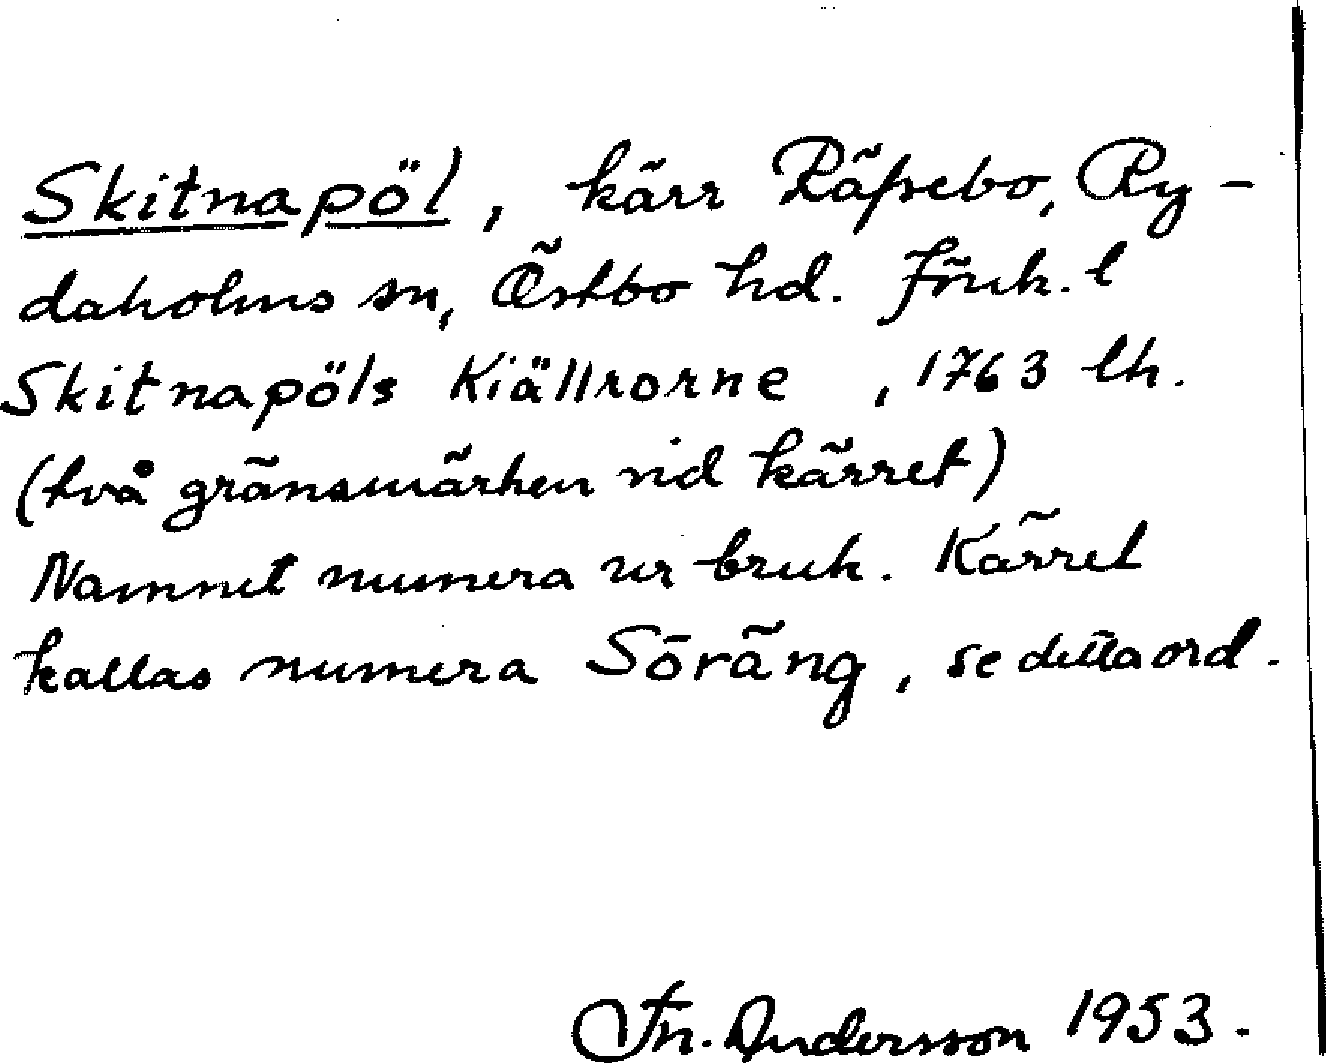 Skitnapöl, kärr Räfsebo, Ry-
daholms sn, Östbo hd. Förek. i
Skitnapöls Kiällrorne, 1763 lh.
(två gränsmärken vid kärret)
Namnet numera ur bruk. Kärret
kallas numera Söräng, se detta ord.
Fr. Andersson 1953.